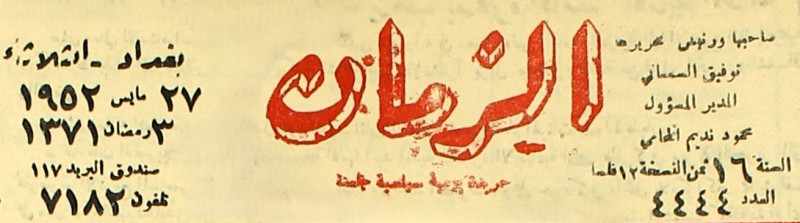 صاحبها ورئيس تحريرها
توفيق السمعاني
المدير المسؤول
محمود نديم المحامي
السنة ١٦ ثمن النسخة ١٢ فلسا
العدد ٤٤٤٤
الزمان
جريدة يومية سياسية جامعة
بغداد - الثلاثاء
٢٧ مايس ١٩٥٢
٣ رمضان ١٣٧١
صندوق البريد ١١٧
تلفون ٧١٨٢